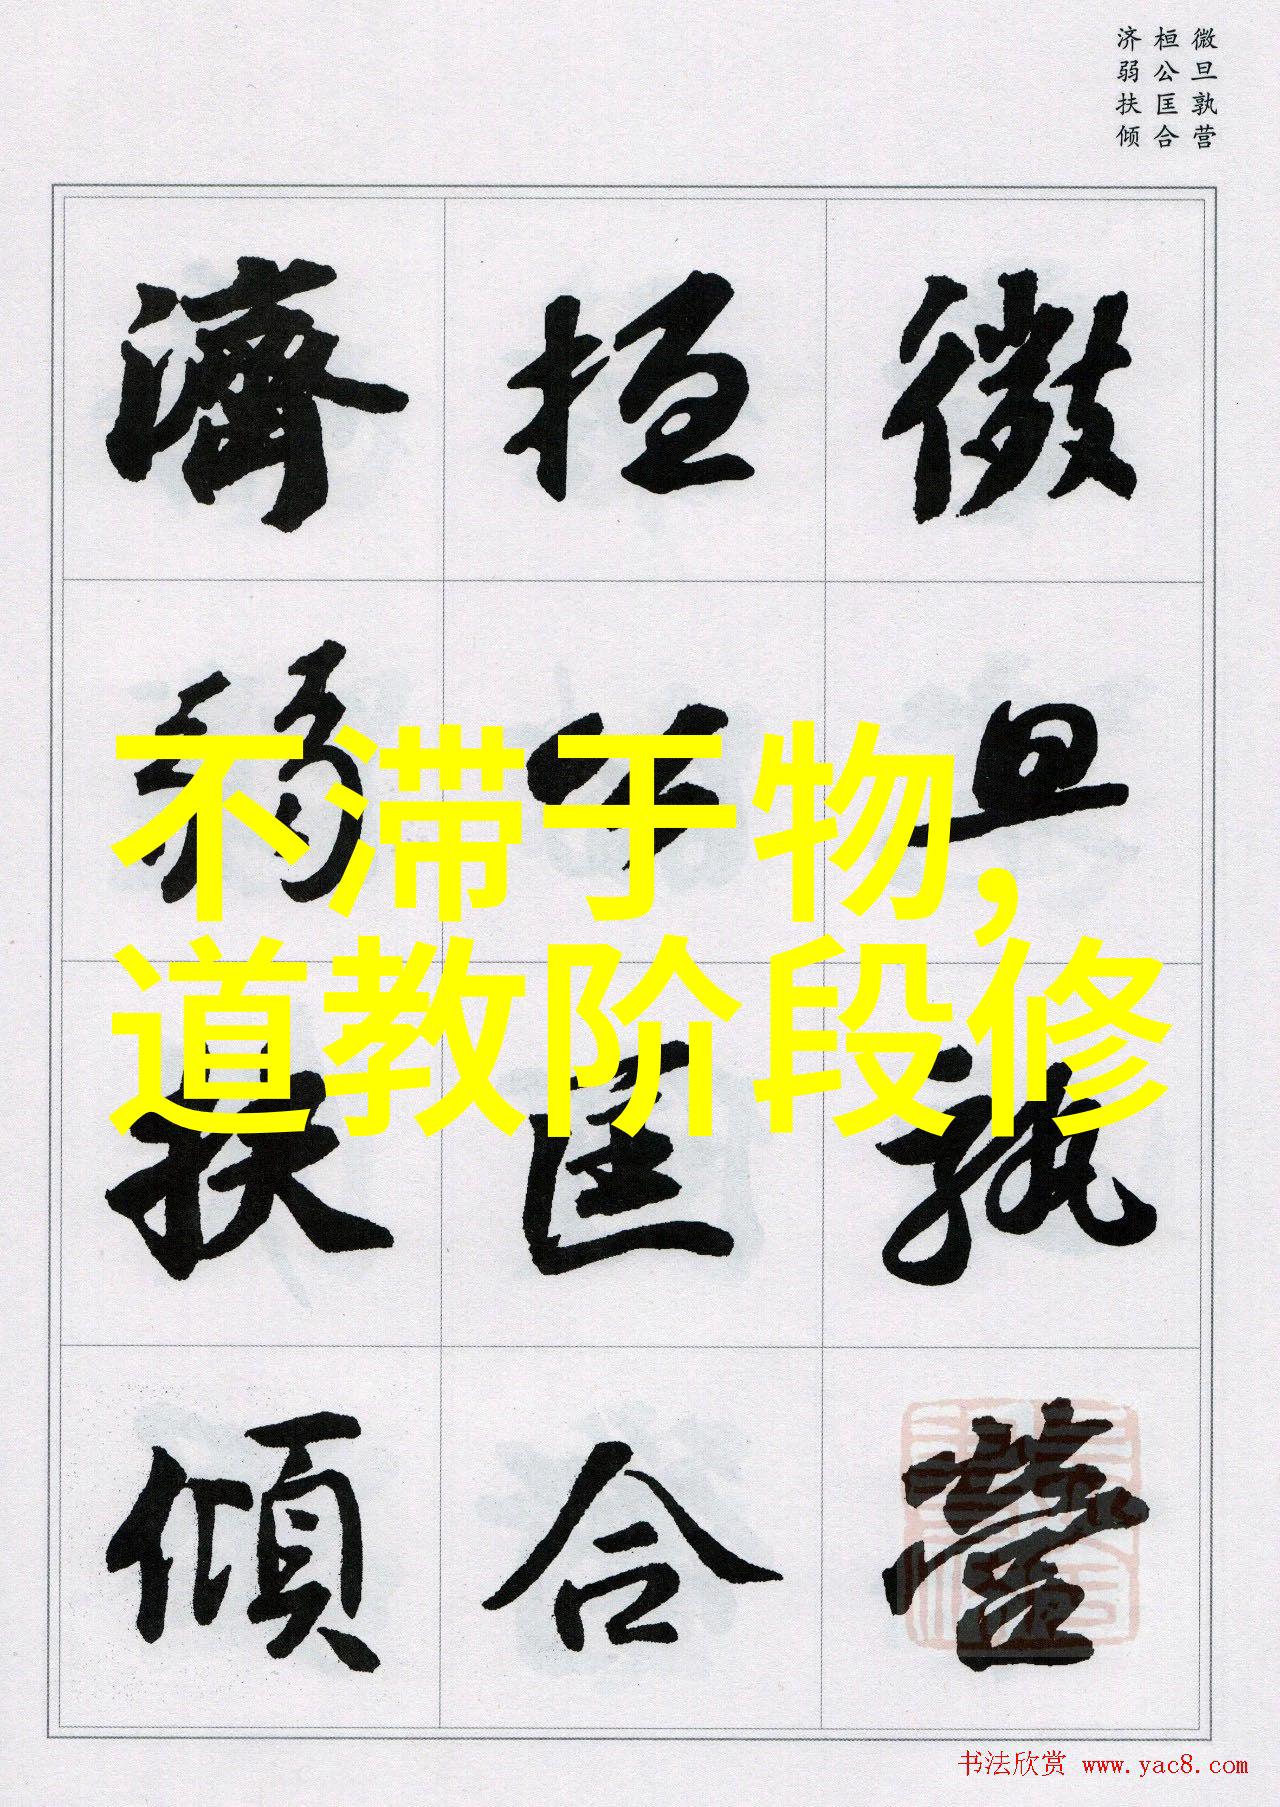 微旦孰营
桓公匡合
济弱扶倾
微旦孰營
桓公匡合
濟弱扶傾
不滞于物，
道教阶段修
书法欣赏 www.yac8.com